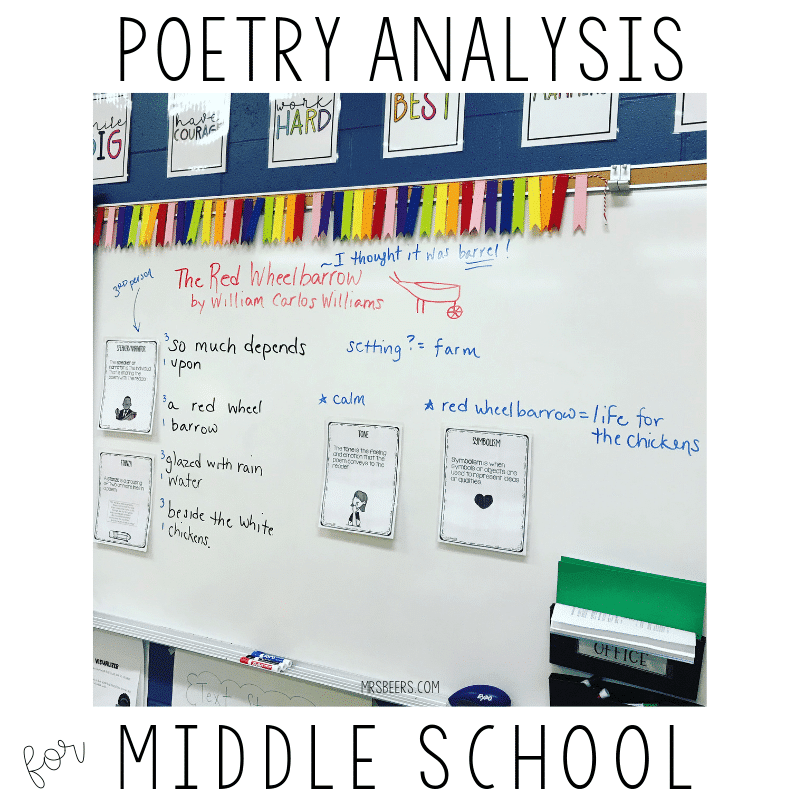 POETRY ANALYSIS
have
COURAGE
work
HARD
BEST
~I thought it was barrel!
3RD person
The Red Wheelbarrow
by William Carlos Williams
3 so much depends
1 upon
setting? = farm
3 a red wheel
1 barrow
★ calm
★ red wheelbarrow = life for
the chickens
3 glazed with rain
1 water
3 beside the white
1 chickens.
SPEAKER/NARRATOR
TONE
The tone is the feeling
and emotion that the
poem conveys to the
reader.
SYMBOLISM
Symbolism is when
symbols or objects are
used to represent ideas
or qualities.
OFFICE
EXPO
MRSBEERS.COM
for MIDDLE SCHOOL